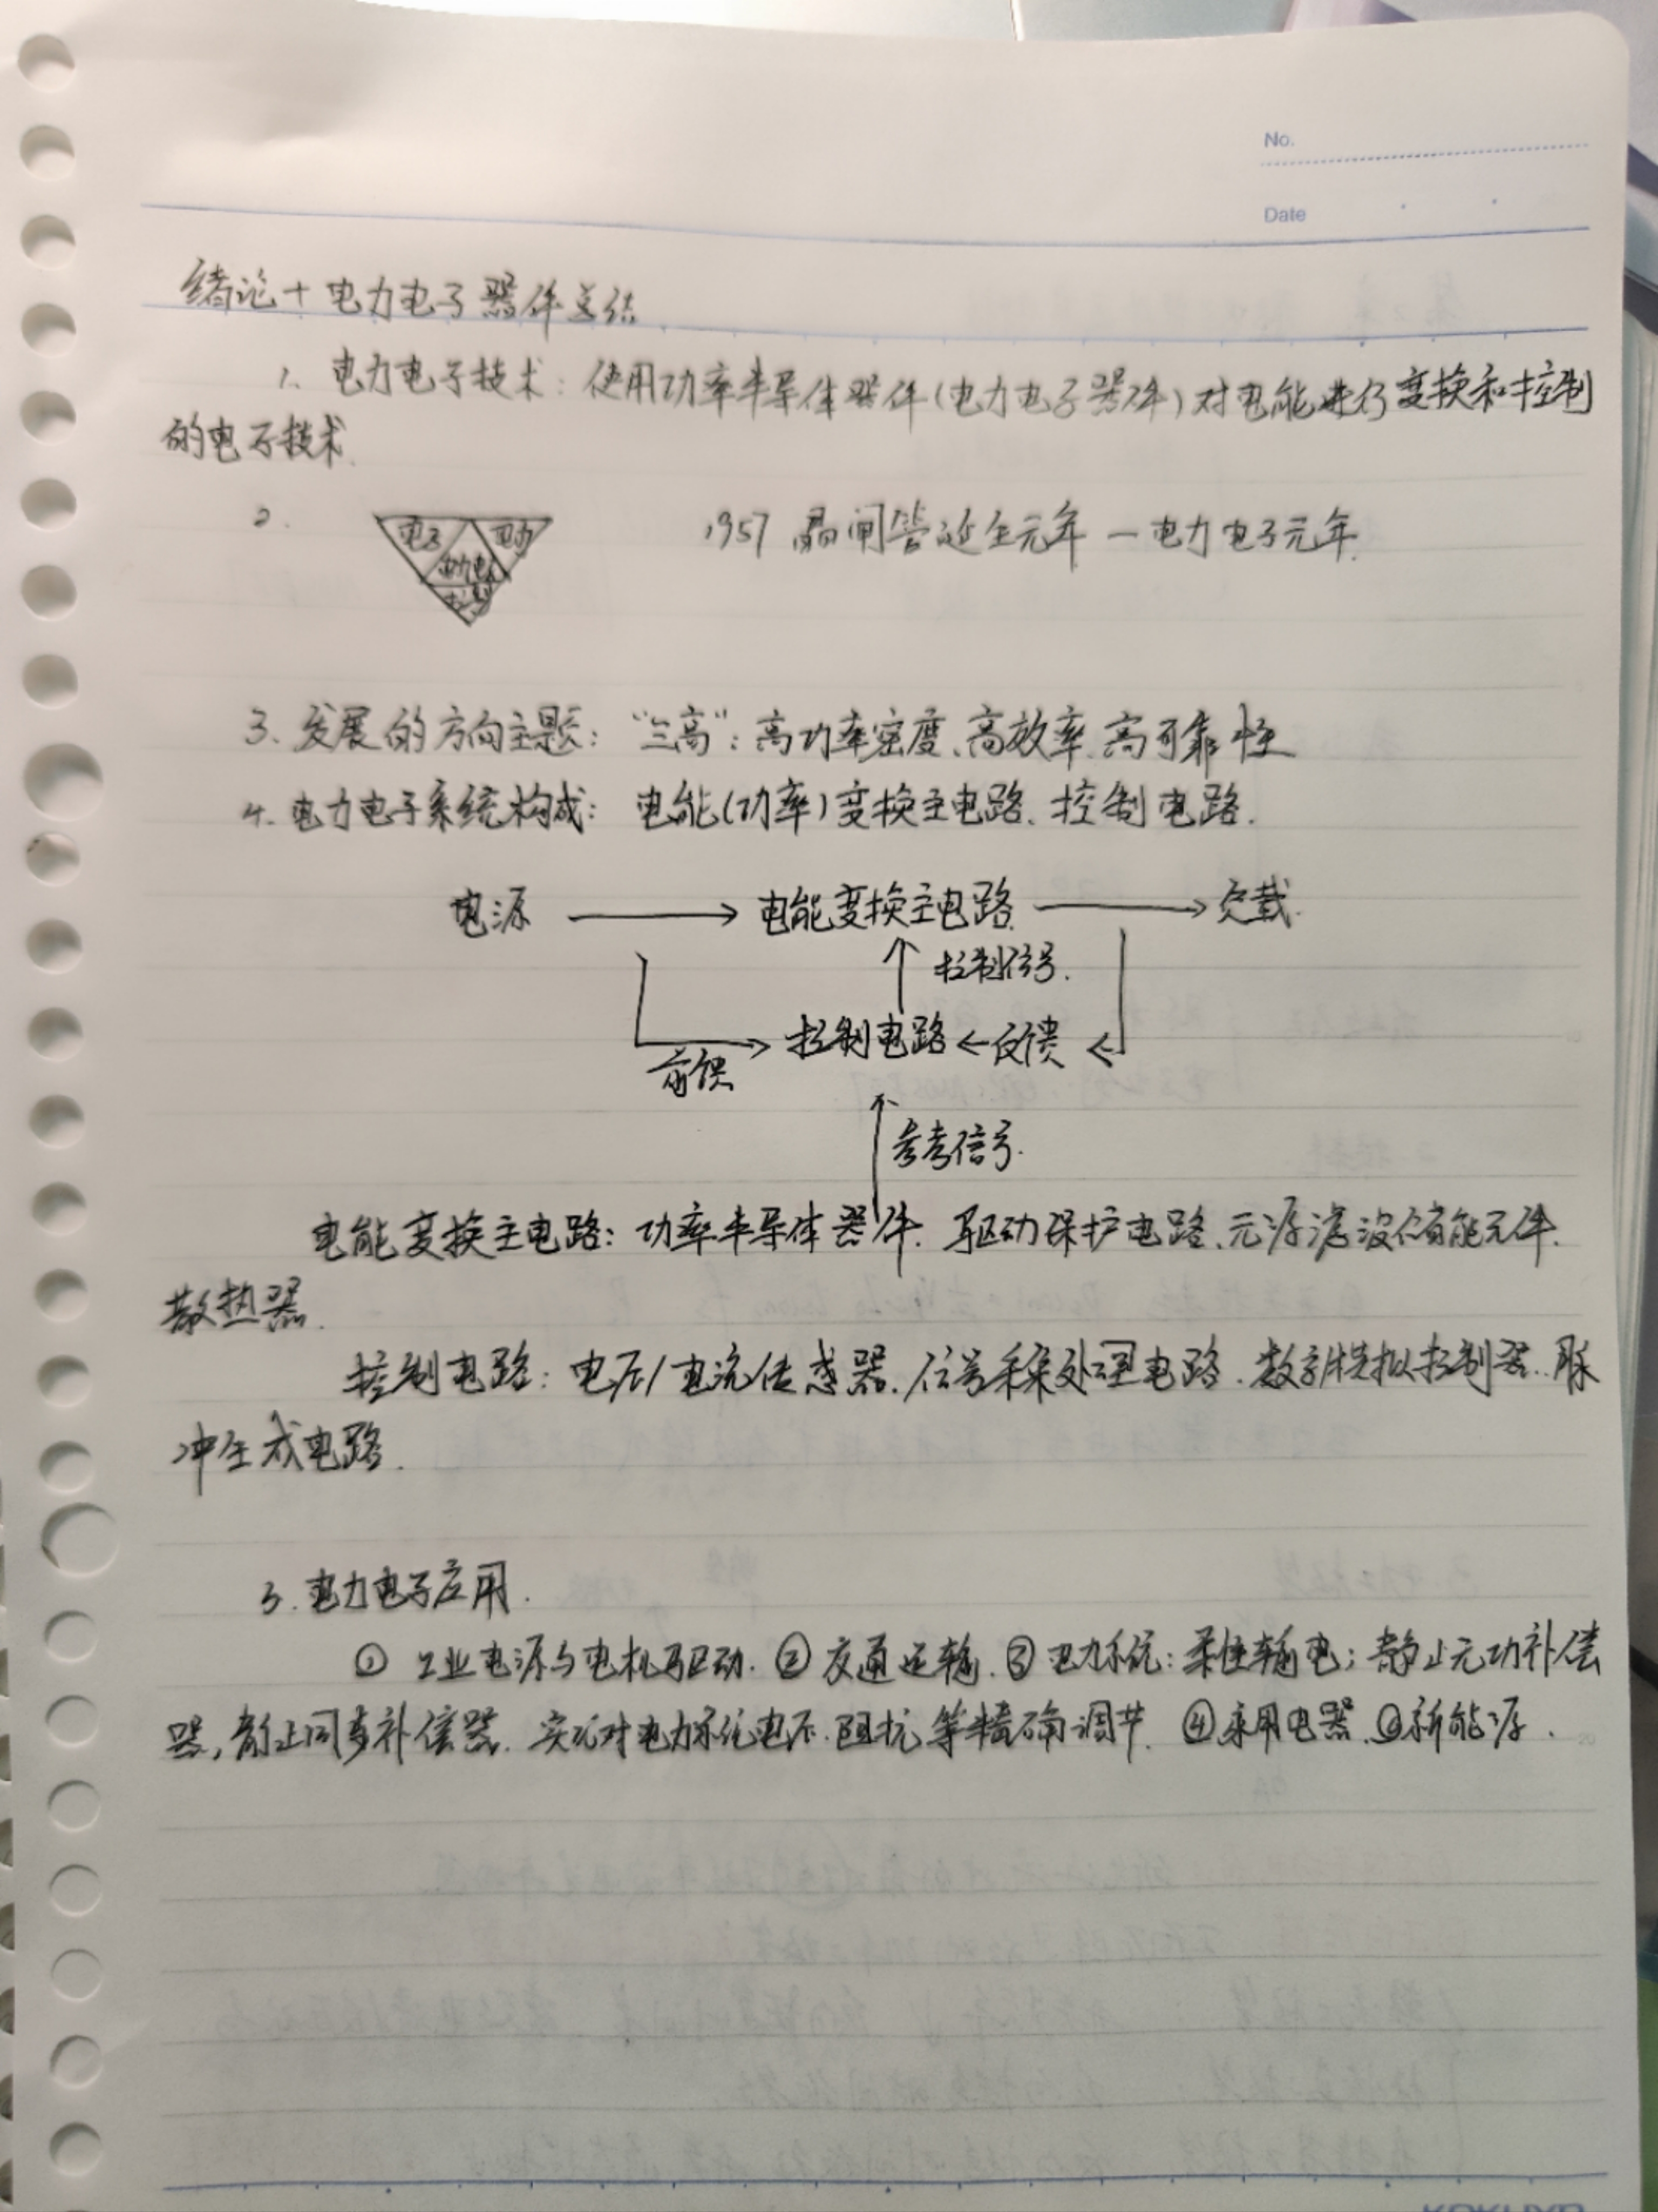 No.
Date
绪论+电力电子器件总结
1. 电力电子技术：使用功率半导体器件(电力电子器件)对电能进行变换和控制
的电子技术.
2.
电子 电力
电力电子
控制
1957 晶闸管诞生元年 — 电力电子元年.
3. 发展的方向主题："三高"：高功率密度、高效率、高可靠性
4. 电力电子系统构成：电能(功率)变换主电路、控制电路.
电源 → 电能变换主电路 → 负载.
↑ 控制信号.
→ 控制电路 ← 反馈 ←
前馈
↑ 参考信号.
电能变换主电路：功率半导体器件、驱动保护电路、无源滤波储能元件、
散热器.
控制电路：电压/电流传感器、信号采集处理电路、数字/模拟控制器、脉
冲生成电路.
5. 电力电子应用.
① 工业电源与电机驱动. ② 交通运输. ③ 电力系统：柔性输电；静止无功补偿
器，静止同步补偿器. 实现对电力系统电压、阻抗等精确调节. ④家用电器. ⑤新能源.